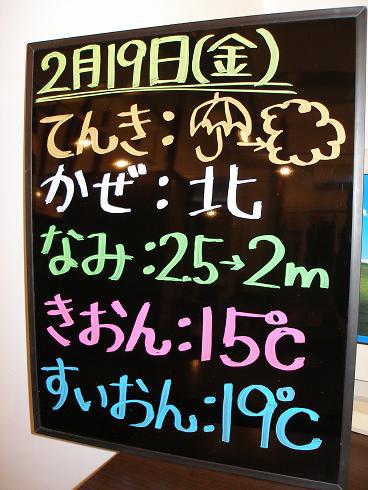 2月19日(金)
てんき:→
かぜ:北
なみ:2.5→2m
きおん:15℃
すいおん:19℃